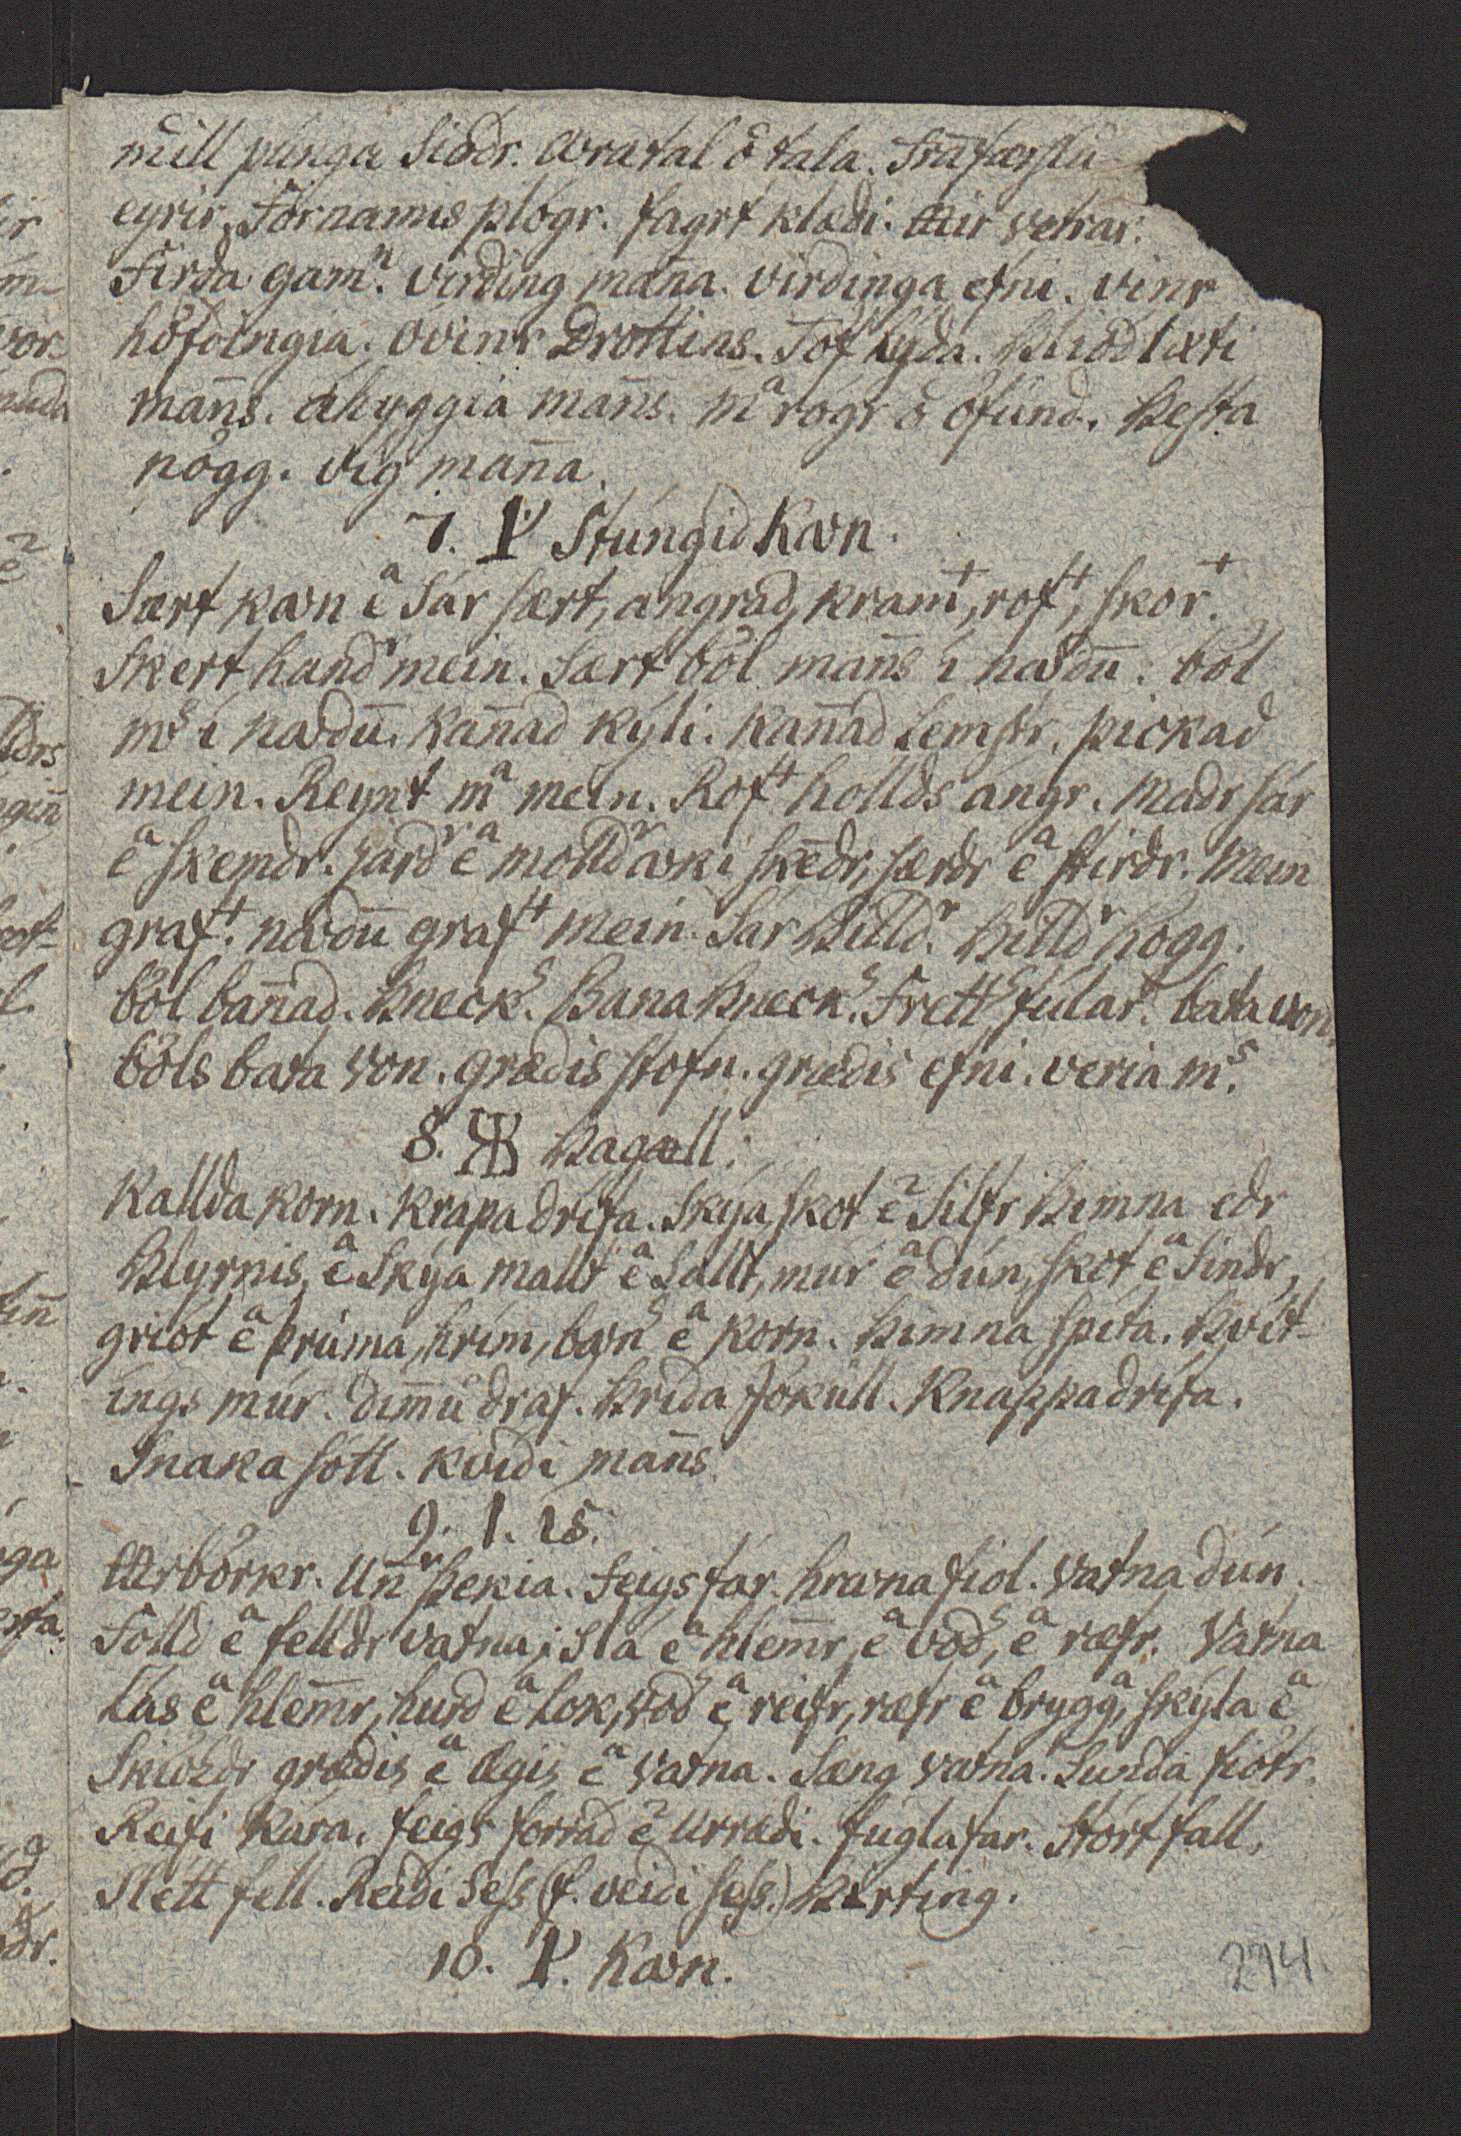 mill punga Siódr. Avratal ô tala. Frafærslu-
eyrir. Fornamis plógr. fagrt klædi. Mir vetrar.
Firda gamn. virding mana. virdinga efni. vinr
höfdingia. óvinr Drottins. Töf lýda. Hliód læti
mans. áhyggia mans. ma rógr ö öfund. Hesta
nögg. vig mana.
7. ᚵ Stúngid Kavn.
Sært kavn ea Sár sært, angrad, kram+, rof+t, skor+.
Skert, handr mein. Sært böl mans i navdu. böl
ms i navdu. kanad kýli. kanad Semstr. pickad
mein. Reynt ma mein. Rof+t hollds angr. Madr sár
ea skemdr. sárdr ea molldavki skedr, særdr ea stirdr. Mein
graf+t. navdu graf+t mein. Sar Hulldr. Hilldr högg.
böl banad. Hnecks. Bana Hnecks. Frett fular. bata von.
böls bata von. grædis stofn. grædis efni. veria ms.
8. Hagall.
Kallda korn. Krapa drifa. Skýja skot e2 Silfr Himna edr
Hlyrnis, ea Skýa mallt ea Sallt, mur ea dún, skot ea Sindr,
griót ea þruma, hrím, bavns ea korn. Himna spita. Hvít-
ings múr. dimu draf. Hrída Jökull. Knappadrífa.
Snaka sótt. kvídi mans
9. ᛁ. is.
Árbörkr. Unr þekia. Feigs fár. hravna fiöl. Vatna dún.
Folld ea felldr vatna; slá ea hlemr, ea vods, ea ræfr. Vatna
Lás ea hlemr, hurd ea Lok, vods ea reifr, ræfr ea brygga, skýla ea
Skiöldr grædis ea Ægis ea Vatna. Sæng vatna. Lunda fiötr.
Reifi Kára. feigs forrad e2 urrædi. fugla far. Stórt fall.
Slétt fell. Reidi Sess (f. veidi sess.) Birting.
10. ᚴ. Kavn.
274